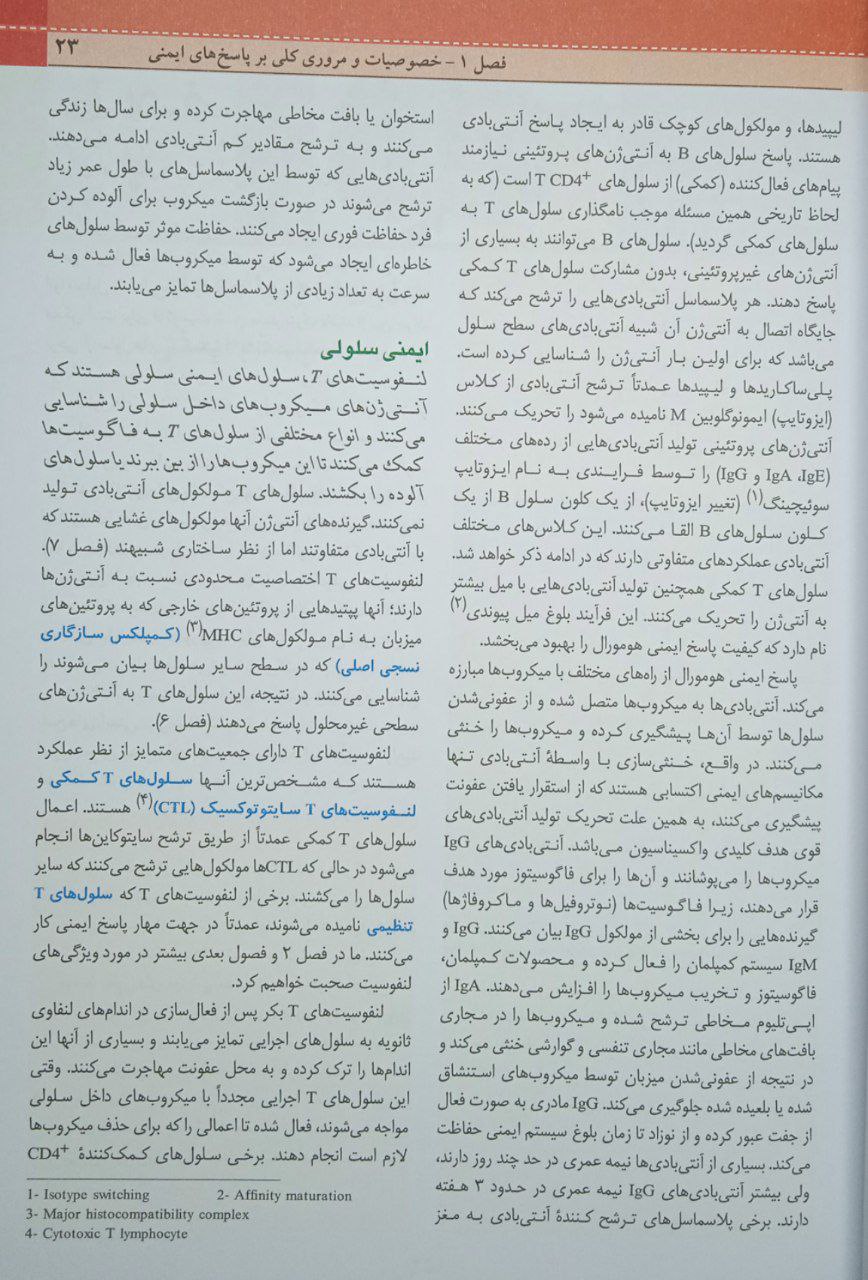 فصل ۱- خصوصیات و مروری کلی بر پاسخ‌های ایمنی
۲۳
لیپیدها، و مولکول‌های کوچک قادر به ایجاد پاسخ آنتی‌بادی
هستند. پاسخ سلول‌های B به آنتی‌ژن‌های پروتئینی نیازمند
پیام‌های فعال‌کننده (کمکی) از سلول‌های T CD4⁺ است (که به
لحاظ تاریخی همین مسئله موجب نامگذاری سلول‌های T به
سلول‌های کمکی گردید). سلول‌های B می‌توانند به بسیاری از
آنتی‌ژن‌های غیرپروتئینی، بدون مشارکت سلول‌های T کمکی
پاسخ دهند. هر پلاسماسل آنتی‌بادی‌هایی را ترشح می‌کند که
جایگاه اتصال به آنتی‌ژن آن شبیه آنتی‌بادی‌های سطح سلول
می‌باشد که برای اولین بار آنتی‌ژن را شناسایی کرده است.
پلی‌ساکاریدها و لیپیدها عمدتاً ترشح آنتی‌بادی از کلاس
(ایزوتایپ) ایمونوگلوبین M نامیده می‌شود را تحریک می‌کنند.
آنتی‌ژن‌های پروتئینی تولید آنتی‌بادی‌هایی از رده‌های مختلف
(IgA ،IgE و IgG) را توسط فرایندی به نام ایزوتایپ
سوئیچینگ(۱) (تغییر ایزوتایپ)، از یک کلون سلول B از یک
کلون سلول‌های B القا می‌کنند. این کلاس‌های مختلف
آنتی‌بادی عملکردهای متفاوتی دارند که در ادامه ذکر خواهد شد.
سلول‌های T کمکی همچنین تولید آنتی‌بادی‌هایی با میل بیشتر
به آنتی‌ژن را تحریک می‌کنند. این فرآیند بلوغ میل پیوندی(۲)
نام دارد که کیفیت پاسخ ایمنی هومورال را بهبود می‌بخشد.
پاسخ ایمنی هومورال از راه‌های مختلف با میکروب‌ها مبارزه
می‌کند. آنتی‌بادی‌ها به میکروب‌ها متصل شده و از عفونی‌شدن
سلول‌ها توسط آن‌ها پیشگیری کرده و میکروب‌ها را خنثی
می‌کنند. در واقع، خنثی‌سازی با واسطهٔ آنتی‌بادی تنها
مکانیسم‌های ایمنی اکتسابی هستند که از استقرار یافتن عفونت
پیشگیری می‌کنند، به همین علت تحریک تولید آنتی‌بادی‌های
قوی هدف کلیدی واکسیناسیون می‌باشد. آنتی‌بادی‌های IgG
میکروب‌ها را می‌پوشانند و آن‌ها را برای فاگوسیتوز مورد هدف
قرار می‌دهند، زیرا فاگوسیت‌ها (نوتروفیل‌ها و ماکروفاژها)
گیرنده‌هایی را برای بخشی از مولکول IgG بیان می‌کنند. IgG و
IgM سیستم کمپلمان را فعال کرده و محصولات کمپلمان،
فاگوسیتوز و تخریب میکروب‌ها را افزایش می‌دهند. IgA از
اپی‌تلیوم مخاطی ترشح شده و میکروب‌ها را در مجاری
بافت‌های مخاطی مانند مجاری تنفسی و گوارشی خنثی می‌کند و
در نتیجه از عفونی‌شدن میزبان توسط میکروب‌های استنشاق
شده یا بلعیده شده جلوگیری می‌کند. IgG مادری به صورت فعال
از جفت عبور کرده و از نوزاد تا زمان بلوغ سیستم ایمنی حفاظت
می‌کند. بسیاری از آنتی‌بادی‌ها نیمه عمری در حد چند روز دارند،
ولی بیشتر آنتی‌بادی‌های IgG نیمه عمری در حدود ۳ هفته
دارند. برخی پلاسماسل‌های ترشح کنندهٔ آنتی‌بادی به مغز
استخوان یا بافت مخاطی مهاجرت کرده و برای سال‌ها زندگی
می‌کنند و به ترشح مقادیر کم آنتی‌بادی ادامه می‌دهند.
آنتی‌بادی‌هایی که توسط این پلاسماسل‌های با طول عمر زیاد
ترشح می‌شوند در صورت بازگشت میکروب برای آلوده کردن
فرد حفاظت فوری ایجاد می‌کنند. حفاظت موثر توسط سلول‌های
خاطره‌ای ایجاد می‌شود که توسط میکروب‌ها فعال شده و به
سرعت به تعداد زیادی از پلاسماسل‌ها تمایز می‌یابند.
ایمنی سلولی
لنفوسیت‌های T، سلول‌های ایمنی سلولی هستند که
آنتی‌ژن‌های میکروب‌های داخل سلولی را شناسایی
می‌کنند و انواع مختلفی از سلول‌های T به فاگوسیت‌ها
کمک می‌کنند تا این میکروب‌ها را از بین ببرند یا سلول‌های
آلوده را بکشند. سلول‌های T مولکول‌های آنتی‌بادی تولید
نمی‌کنند. گیرنده‌های آنتی‌ژن آنها مولکول‌های غشایی هستند که
با آنتی‌بادی متفاوتند اما از نظر ساختاری شبیهند (فصل ۷).
لنفوسیت‌های T اختصاصیت محدودی نسبت به آنتی‌ژن‌ها
دارند؛ آنها پپتیدهایی از پروتئین‌های خارجی که به پروتئین‌های
میزبان به نام مولکول‌های MHC(۳) (کمپلکس سازگاری
نسجی اصلی) که در سطح سایر سلول‌ها بیان می‌شوند را
شناسایی می‌کنند. در نتیجه، این سلول‌های T به آنتی‌ژن‌های
سطحی غیرمحلول پاسخ می‌دهند (فصل ۶).
لنفوسیت‌های T دارای جمعیت‌های متمایز از نظر عملکرد
هستند که مشخص‌ترین آنها سلول‌های T کمکی و
لنفوسیت‌های T سایتوتوکسیک (CTL)(۴) هستند. اعمال
سلول‌های T کمکی عمدتاً از طریق ترشح سایتوکاین‌ها انجام
می‌شود در حالی که CTLها مولکول‌هایی ترشح می‌کنند که سایر
سلول‌ها را می‌کشند. برخی از لنفوسیت‌های T که سلول‌های T
تنظیمی نامیده می‌شوند، عمدتاً در جهت مهار پاسخ ایمنی کار
می‌کنند. ما در فصل ۲ و فصول بعدی بیشتر در مورد ویژگی‌های
لنفوسیت صحبت خواهیم کرد.
لنفوسیت‌های T بکر پس از فعال‌سازی در اندام‌های لنفاوی
ثانویه به سلول‌های اجرایی تمایز می‌یابند و بسیاری از آنها این
اندام‌ها را ترک کرده و به محل عفونت مهاجرت می‌کنند. وقتی
این سلول‌های T اجرایی مجدداً با میکروب‌های داخل سلولی
مواجه می‌شوند، فعال شده تا اعمالی را که برای حذف میکروب‌ها
لازم است انجام دهند. برخی سلول‌های کمک‌کنندهٔ CD4⁺
1- Isotype switching 2- Affinity maturation
3- Major histocompatibility complex
4- Cytotoxic T lymphocyte